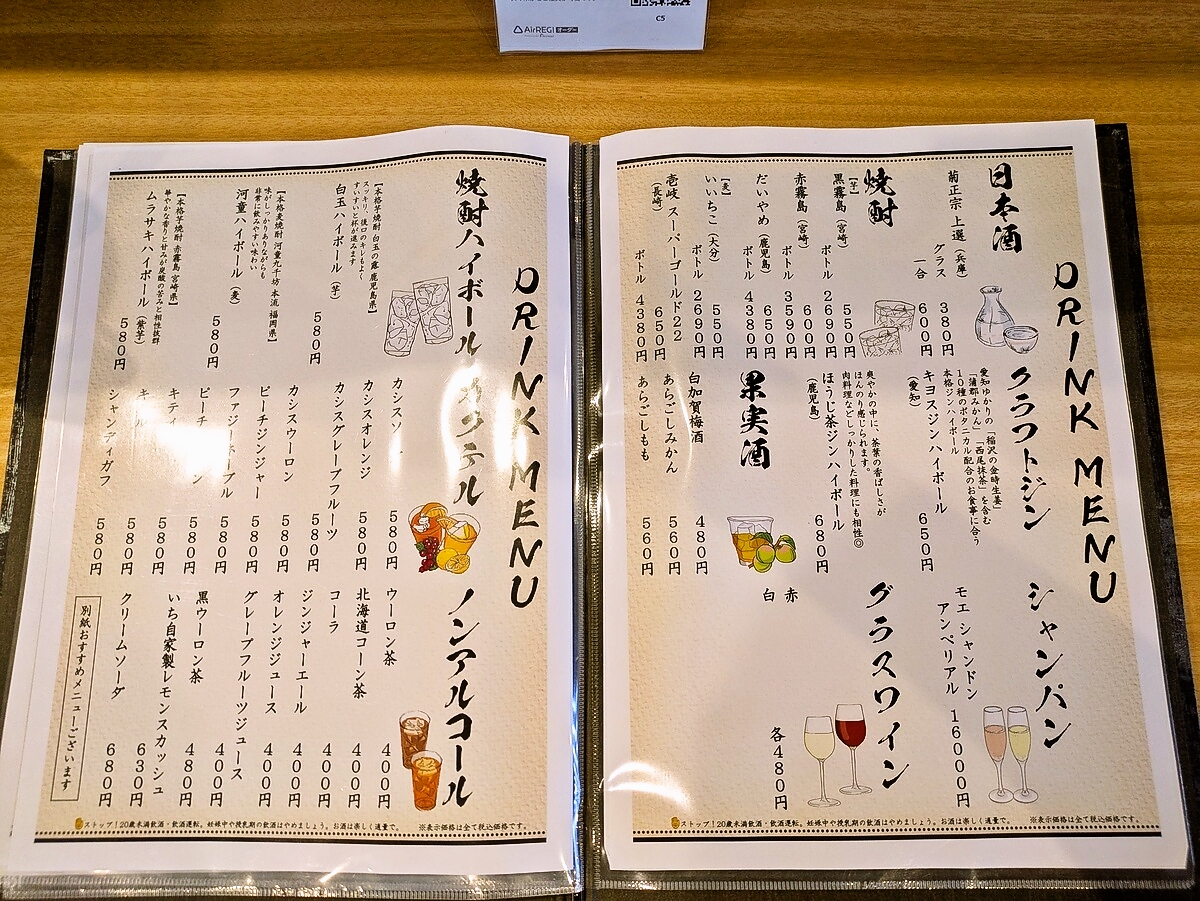 C5
AirREGI オーダー
DRINK MENU
日本酒
菊正宗 上選（兵庫）
グラス 380円
一合 600円
焼酎
【芋】
黒霧島（宮崎） 550円
ボトル 2690円
赤霧島（宮崎） 600円
ボトル 3590円
だいやめ（鹿児島） 650円
ボトル 4380円
【麦】
いいちこ（大分） 550円
ボトル 2690円
壱岐 スーパーゴールド22 650円
（長崎） ボトル 4380円
クラフトジン
愛知ゆかりの「稲沢の金時生姜」
「蒲郡みかん」「西尾抹茶」を含む
10種のボタニカル配合のお食事に合う
本格ジンハイボール
キヨスジンハイボール 650円
（愛知）
爽やかの中に、茶葉の香ばしさが
ほんのり感じられます。
肉料理などしっかりした料理にも相性◎
ほうじ茶ジンハイボール 680円
（鹿児島）
果実酒
白加賀梅酒 480円
あらごしみかん 560円
あらごしもも 560円
シャンパン
モエ シャンドン
アンペリアル 16000円
グラスワイン
赤
白
各480円
ストップ！20歳未満飲酒・飲酒運転。妊娠中や授乳期の飲酒はやめましょう。お酒は楽しく適量で。
※表示価格は全て税込価格です。
DRINK MENU
焼酎ハイボール
【本格芋焼酎 白玉の露 鹿児島県】
スッキリ、後口のキレもよく
すいすいと杯が進みます
白玉ハイボール（芋） 580円
【本格麦焼酎 河童九千坊 本流 福岡県】
味がしっかりありながらも
非常に飲みやすい味わい
河童ハイボール（麦） 580円
【本格芋焼酎 赤霧島 宮崎県】
華やかな香りと甘みが炭酸の苦みと相性抜群
ムラサキハイボール（紫芋） 580円
カクテル
カシスソ 580円
カシスオレンジ 580円
カシスグレープフルーツ 580円
カシスウーロン 580円
ピーチジンジャー 580円
ファジーネーブル 580円
ピーチ ン 580円
キティ 580円
キール 580円
シャンディガフ 580円
ノンアルコール
ウーロン茶 400円
北海道コーン茶 400円
コーラ 400円
ジンジャーエール 400円
オレンジジュース 400円
グレープフルーツジュース 400円
黒ウーロン茶 480円
いち自家製レモンスカッシュ 630円
クリームソーダ 680円
別紙おすすめメニューございます
ストップ！20歳未満飲酒・飲酒運転。妊娠中や授乳期の飲酒はやめましょう。お酒は楽しく適量で。
※表示価格は全て税込価格です。